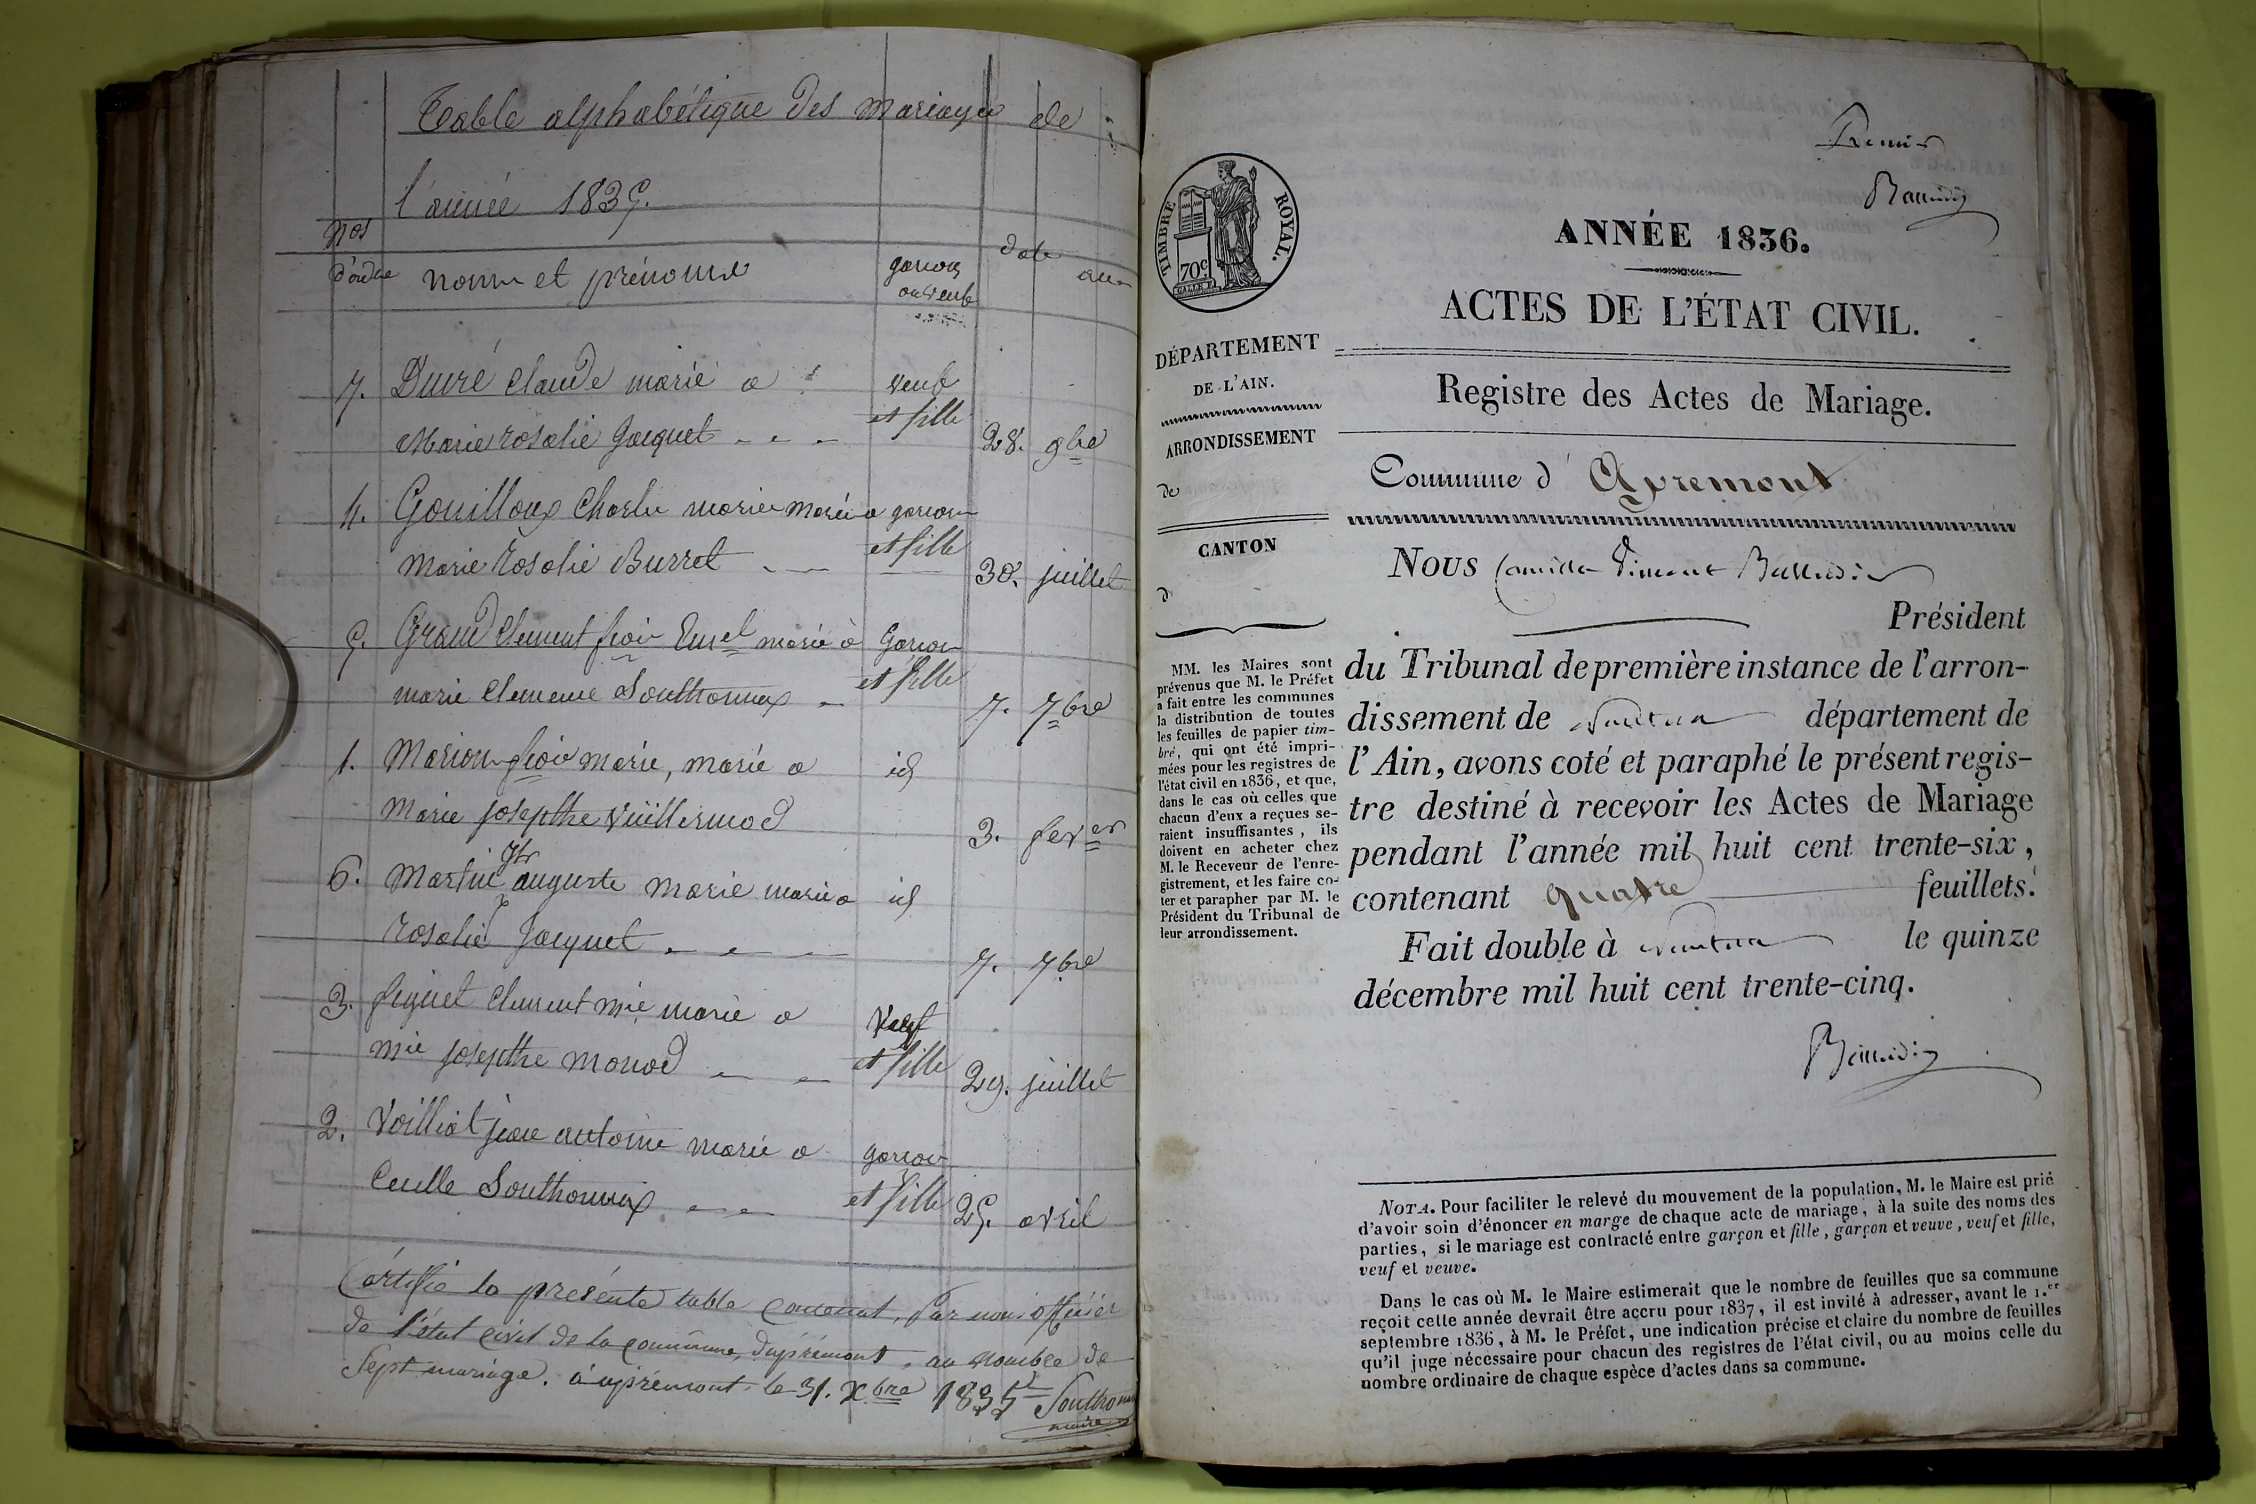 Table alphabétique des mariages de
l'année 1835.
nos
d'ordre
noms et prénoms
garçons
ou veufs
date
7. Ducré Claude marié a
veuf
et fille
Marie rosalie Jacquet
28. 9bre
4. Gouilloux Charles marie marié a
garçon
et fille
Marie Rosalie Burret
30. juillet
5. Grand Clement fçois marié à
Garçon
et fille
marie Clemence Southonnax
7. 7bre
1. Marion fçois marie, marié a
id
Marie josepthe Vuillermod
3. fever
6. Martin auguste marie marié a
id
Rosalie Jacquet
7. 7bre
3. Clement mie marié a
Veuf
et fille
mie josepthe monod
29. juillet
2. Voilliat jean antoine marié a
garçon
et fille
Southonnax
25. avril
Certifié la présente table par nous officier
de l'état civil de la commune d'apremont, au nombre de
Sept mariage. à apremont le 31. Xbre 1835
Southonnax
maire
Premier
TIMBRE ROYAL.
70c
ANNÉE 1836.
ACTES DE L'ÉTAT CIVIL.
DÉPARTEMENT
DE L'AIN.
ARRONDISSEMENT
de
CANTON
d
Registre des Actes de Mariage.
Commune d'Apremont
NOUS Camille Vincent
Président
du Tribunal de première instance de l'arron-
dissement de Nantua département de
l'Ain, avons coté et paraphé le présent regis-
tre destiné à recevoir les Actes de Mariage
pendant l'année mil huit cent trente-six,
contenant quatre feuillets.
Fait double à Nantua le quinze
décembre mil huit cent trente-cinq.
MM. les Maires sont
prévenus que M. le Préfet
a fait entre les communes
la distribution de toutes
les feuilles de papier tim-
bré, qui ont été impri-
mées pour les registres de
l'état civil en 1836, et que,
dans le cas où celles que
chacun d'eux a reçues se-
raient insuffisantes, ils
doivent en acheter chez
M. le Receveur de l'enre-
gistrement, et les faire co-
ter et parapher par M. le
Président du Tribunal de
leur arrondissement.
NOTA. Pour faciliter le relevé du mouvement de la population, M. le Maire est prié
d'avoir soin d'énoncer en marge de chaque acte de mariage, à la suite des noms des
parties, si le mariage est contracté entre garçon et fille, garçon et veuve, veuf et fille,
veuf et veuve.
Dans le cas où M. le Maire estimerait que le nombre de feuilles que sa commune
reçoit cette année devrait être accru pour 1837, il est invité à adresser, avant le 1.er
septembre 1836, à M. le Préfet, une indication précise et claire du nombre de feuilles
qu'il juge nécessaire pour chacun des registres de l'état civil, ou au moins celle du
nombre ordinaire de chaque espèce d'actes dans sa commune.